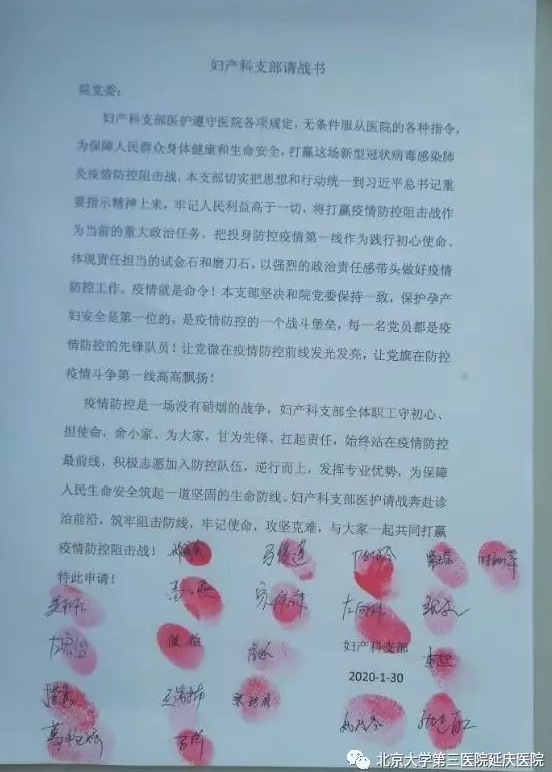 妇产科支部请战书
院党委：
妇产科支部医护遵守医院各项规定，无条件服从医院的各种指令，
为保障人民群众身体健康和生命安全，打赢这场新型冠状病毒感染肺
炎疫情防控阻击战，本支部切实把思想和行动统一到习近平总书记重
要指示精神上来，牢记人民利益高于一切，将打赢疫情防控阻击战作
为当前的重大政治任务，把投身防控疫情第一线作为践行初心使命、
体现责任担当的试金石和磨刀石，以强烈的政治责任感带头做好疫情
防控工作。疫情就是命令！本支部坚决和院党委保持一致，保护孕产
妇安全是第一位的，是疫情防控的一个战斗堡垒，每一名党员都是疫
情防控的先锋队员！让党徽在疫情防控前线发光发亮，让党旗在防控
疫情斗争第一线高高飘扬！
疫情防控是一场没有硝烟的战争，妇产科支部全体职工守初心、
担使命，舍小家、为大家，甘为先锋、扛起责任，始终站在疫情防控
最前线，积极志愿加入防控队伍，逆行而上，发挥专业优势，为保障
人民生命安全筑起一道坚固的生命防线。妇产科支部医护请战奔赴诊
治前沿，筑牢阻击防线，牢记使命，攻坚克难，与大家一起共同打赢
疫情防控阻击战！
特此申请！
妇产科支部
2020-1-30
北京大学第三医院延庆医院